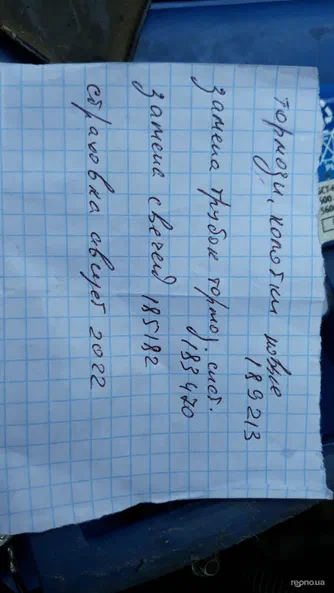 тормоза, колодки новые
189213
замена трубок тормоз. сист.
183470
замена свечей 185182
страховка август 2022
reono.ua